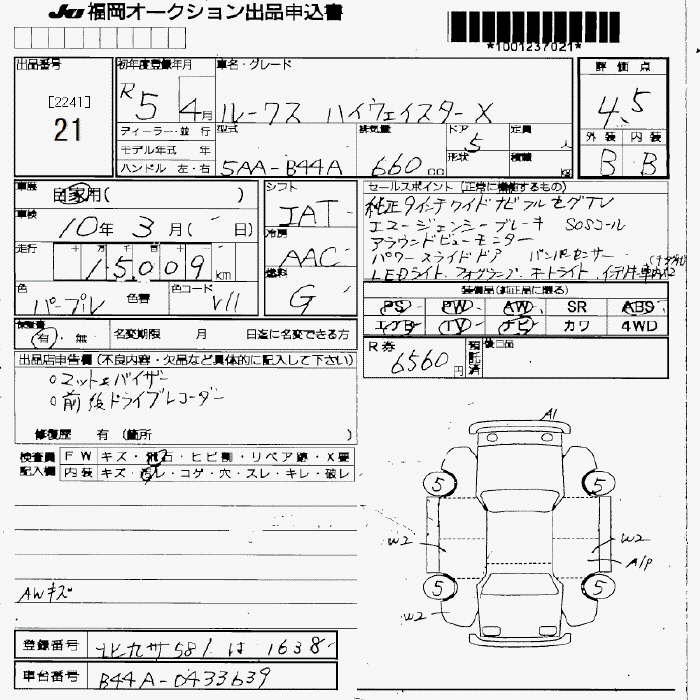 JU福岡オークション出品申込書
*1001237021*
出品番号
[2241]
21
初年度登録年月
R5 4月
車名・グレード
ルークス ハイウェイスターX
評価点
4.5
外装 内装
B B
ディーラー・並行
モデル年式 年
ハンドル 左・右
型式
5AA-B44A
排気量
660 cc
ドア
5
形状
定員
人
積載
kg
車歴
自家用( )
車検
10年 3月( 日)
走行
十万千百十
15,009 km
色
パープル
色替
色コード
シフト
IAT
冷房
AAC
燃料
G
セールスポイント(正常に機能するもの)
純正9インチワイドナビ フルセグTV
エマージェンシーブレーキ SOSコール
アラウンドビューモニター
パワースライドドア
LEDライト、フォグランプ、オートライト、インテリキー
装備品(純正品に限る)
PS PW AW SR ABS
エアB TV ナビ カワ 4WD
有・無
名変期限 月 日迄に名変できる方
R券
6560円
預託済
後日品
出品店申告欄(不良内容・欠品など具体的に記入して下さい)
○マット&バイザー
○前後ドライブレコーダー
修復歴 有(箇所 )
検査員記入欄
FW キズ・飛石・ヒビ割・リペア跡・X要
内装 キズ・汚レ・コゲ・穴・スレ・キレ・破レ
A1
5 5
W2 W2
A1P
5 5
W2
AWキズ
登録番号
北九州 581 は 1638
車台番号
B44A-0433639